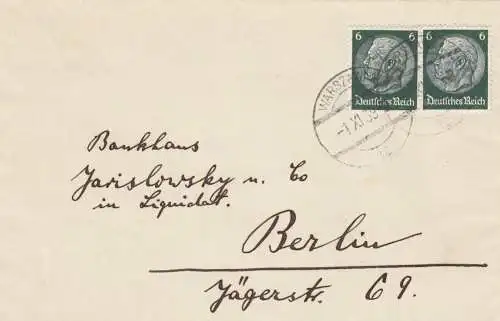 6 6
Deutsches Reich Deutsches Reich
WARSZA
-1 XI 39
Bankhaus
Jarislowsky u. Co
in Liquidat.
Berlin
Jägerstr. 69.